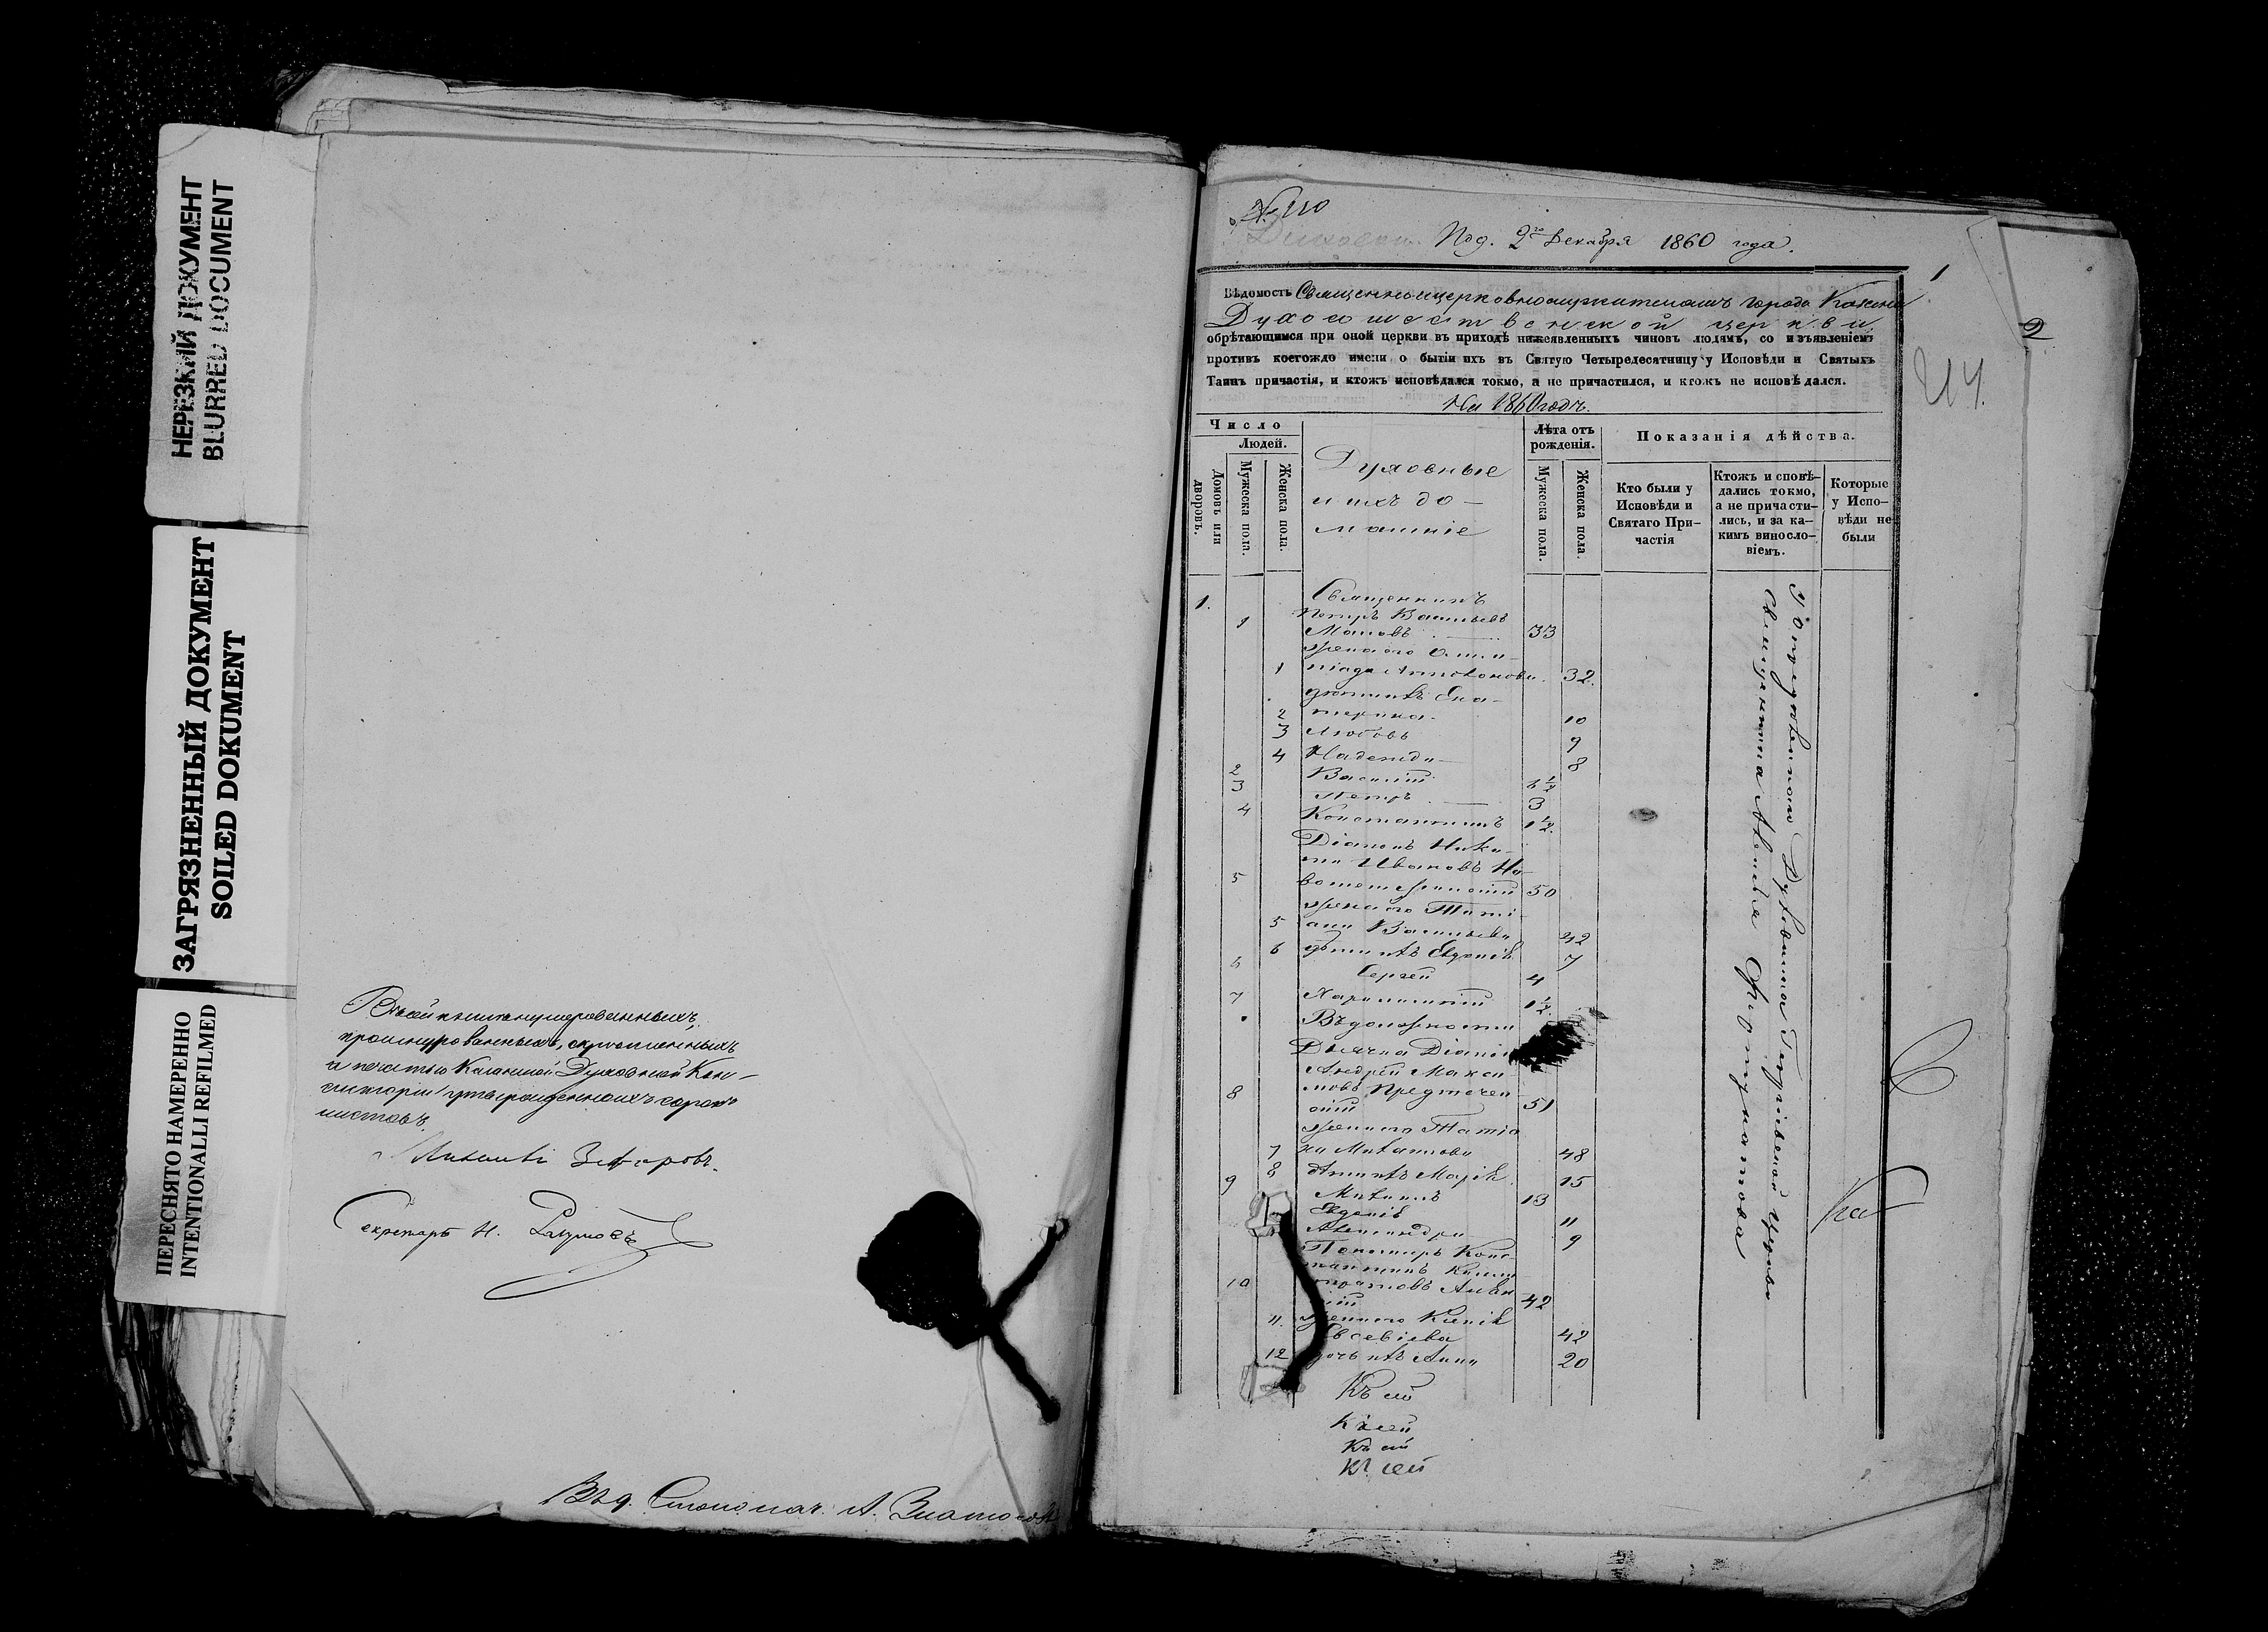 НЕРЕЗКИЙ ДОКУМЕНТ
BLURRED DOCUMENT
ЗАГРЯЗНЕННЫЙ ДОКУМЕНТ
SOILED DOKUMENT
ПЕРЕСНЯТО НАМЕРЕННО
INTENTIONALLI REFILMED
Въ сей книгѣ нумерованныхъ,
прошнурованныхъ, скрепленныхъ
и печатью Казанской Духовной Кон-
систоріи утвержденныхъ сорокъ
листовъ.
Секретарь Н. Разумовъ
№ 110
Под. 2го Декабря 1860 года.
1
2
214.
Вѣдомость Священноцерковнослужителямъ города Казани
Духосошественской церкви
обрѣтающимся при оной церкви въ приходѣ нижеявленныхъ чиновъ людямъ, со изъявленіемъ
противъ коегождо имени о бытіи ихъ въ Святую Четыредесятницу у Исповѣди и Святыхъ
Таинъ причастія, и ктожъ исповѣдался токмо, а не причастился, и ктожъ не исповѣдался.
На 1860 годъ.
Число
Людей.
Домовъ или дворовъ.
Мужеска пола.
Женска пола.
Духовные
и ихъ до-
машніе
Лѣта отъ
рожденія.
Мужеска пола.
Женска пола.
Показанія дѣйства.
Кто были у
Исповѣди и
Святаго При-
частія
Ктожъ исповѣ-
дались токмо,
а не причасти-
лись, и за ка-
кимъ винословіемъ.
Которые
у Испо-
вѣди не
были
1.
Священникъ
1 Петръ Васильевъ
Маловъ 33
жена его Олим-
1 піада 32.
дѣти ихъ Ека-
2 терина. 10
3 Любовь 9
4 Надежда 8
2 Василій
3 Петръ 3
4 Константинъ 1½.
Діаконъ Ники-
та Ивановъ Но-
5 50
жена его Таті-
5 ана Васильева 42
6 дѣти ихъ Евдокія 7
6 Сергей 4
7 1½.
Въ должности
Дьячка Діаконъ
Андрей Макси-
8 мовъ Предтечен-
скій 51
жена его Татіа-
7 на Михайлова 48
8 дѣти ихъ Марія 15
9 Михаилъ 13
Евдокія 11
Александра 9
Пономарь Конс-
тантинъ
10 42
11. жена его Ксенія
Евсевіева 42
12 дочь ихъ Анна 20
Къ сей
Къ сей
Къ сей
Къ сей